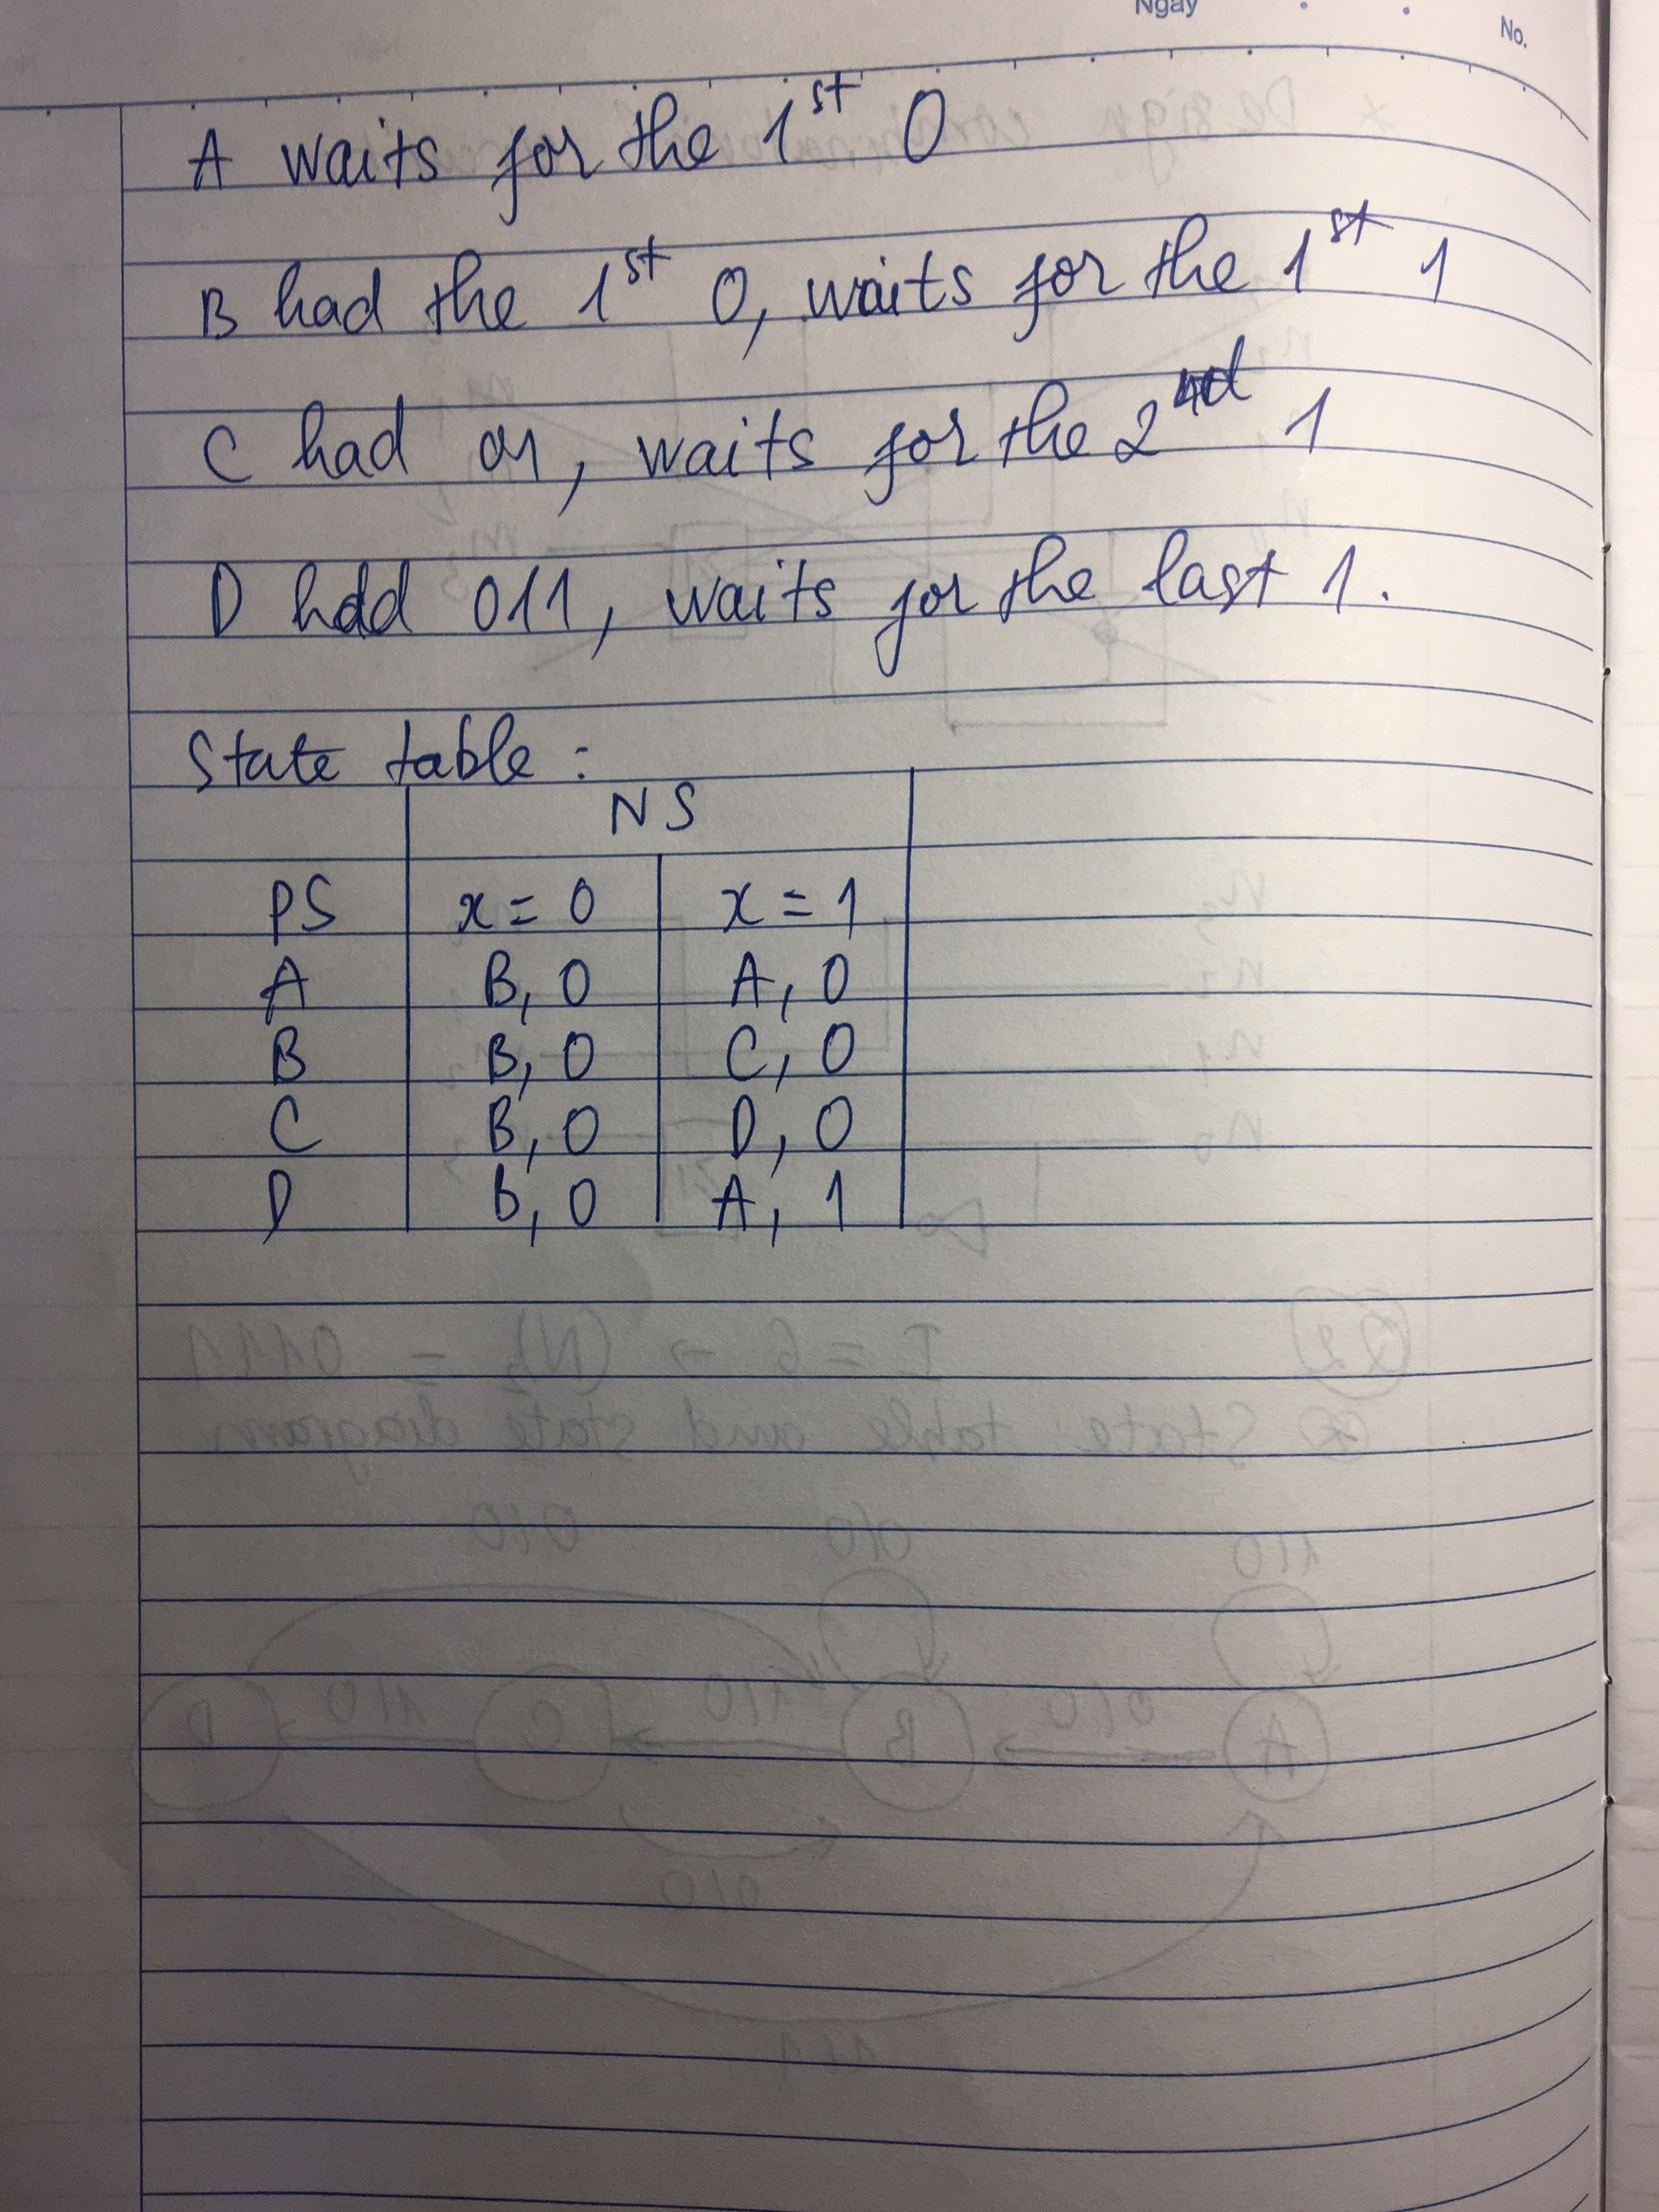 Ngày
No.
A waits for the 1st 0
B had the 1st 0, waits for the 1st 1
C had 01, waits for the 2nd 1
D had 011, waits for the last 1.
State table :
NS
PS x = 0 x = 1
A B, 0 A, 0
B B, 0 C, 0
C B, 0 D, 0
D B, 0 A, 1